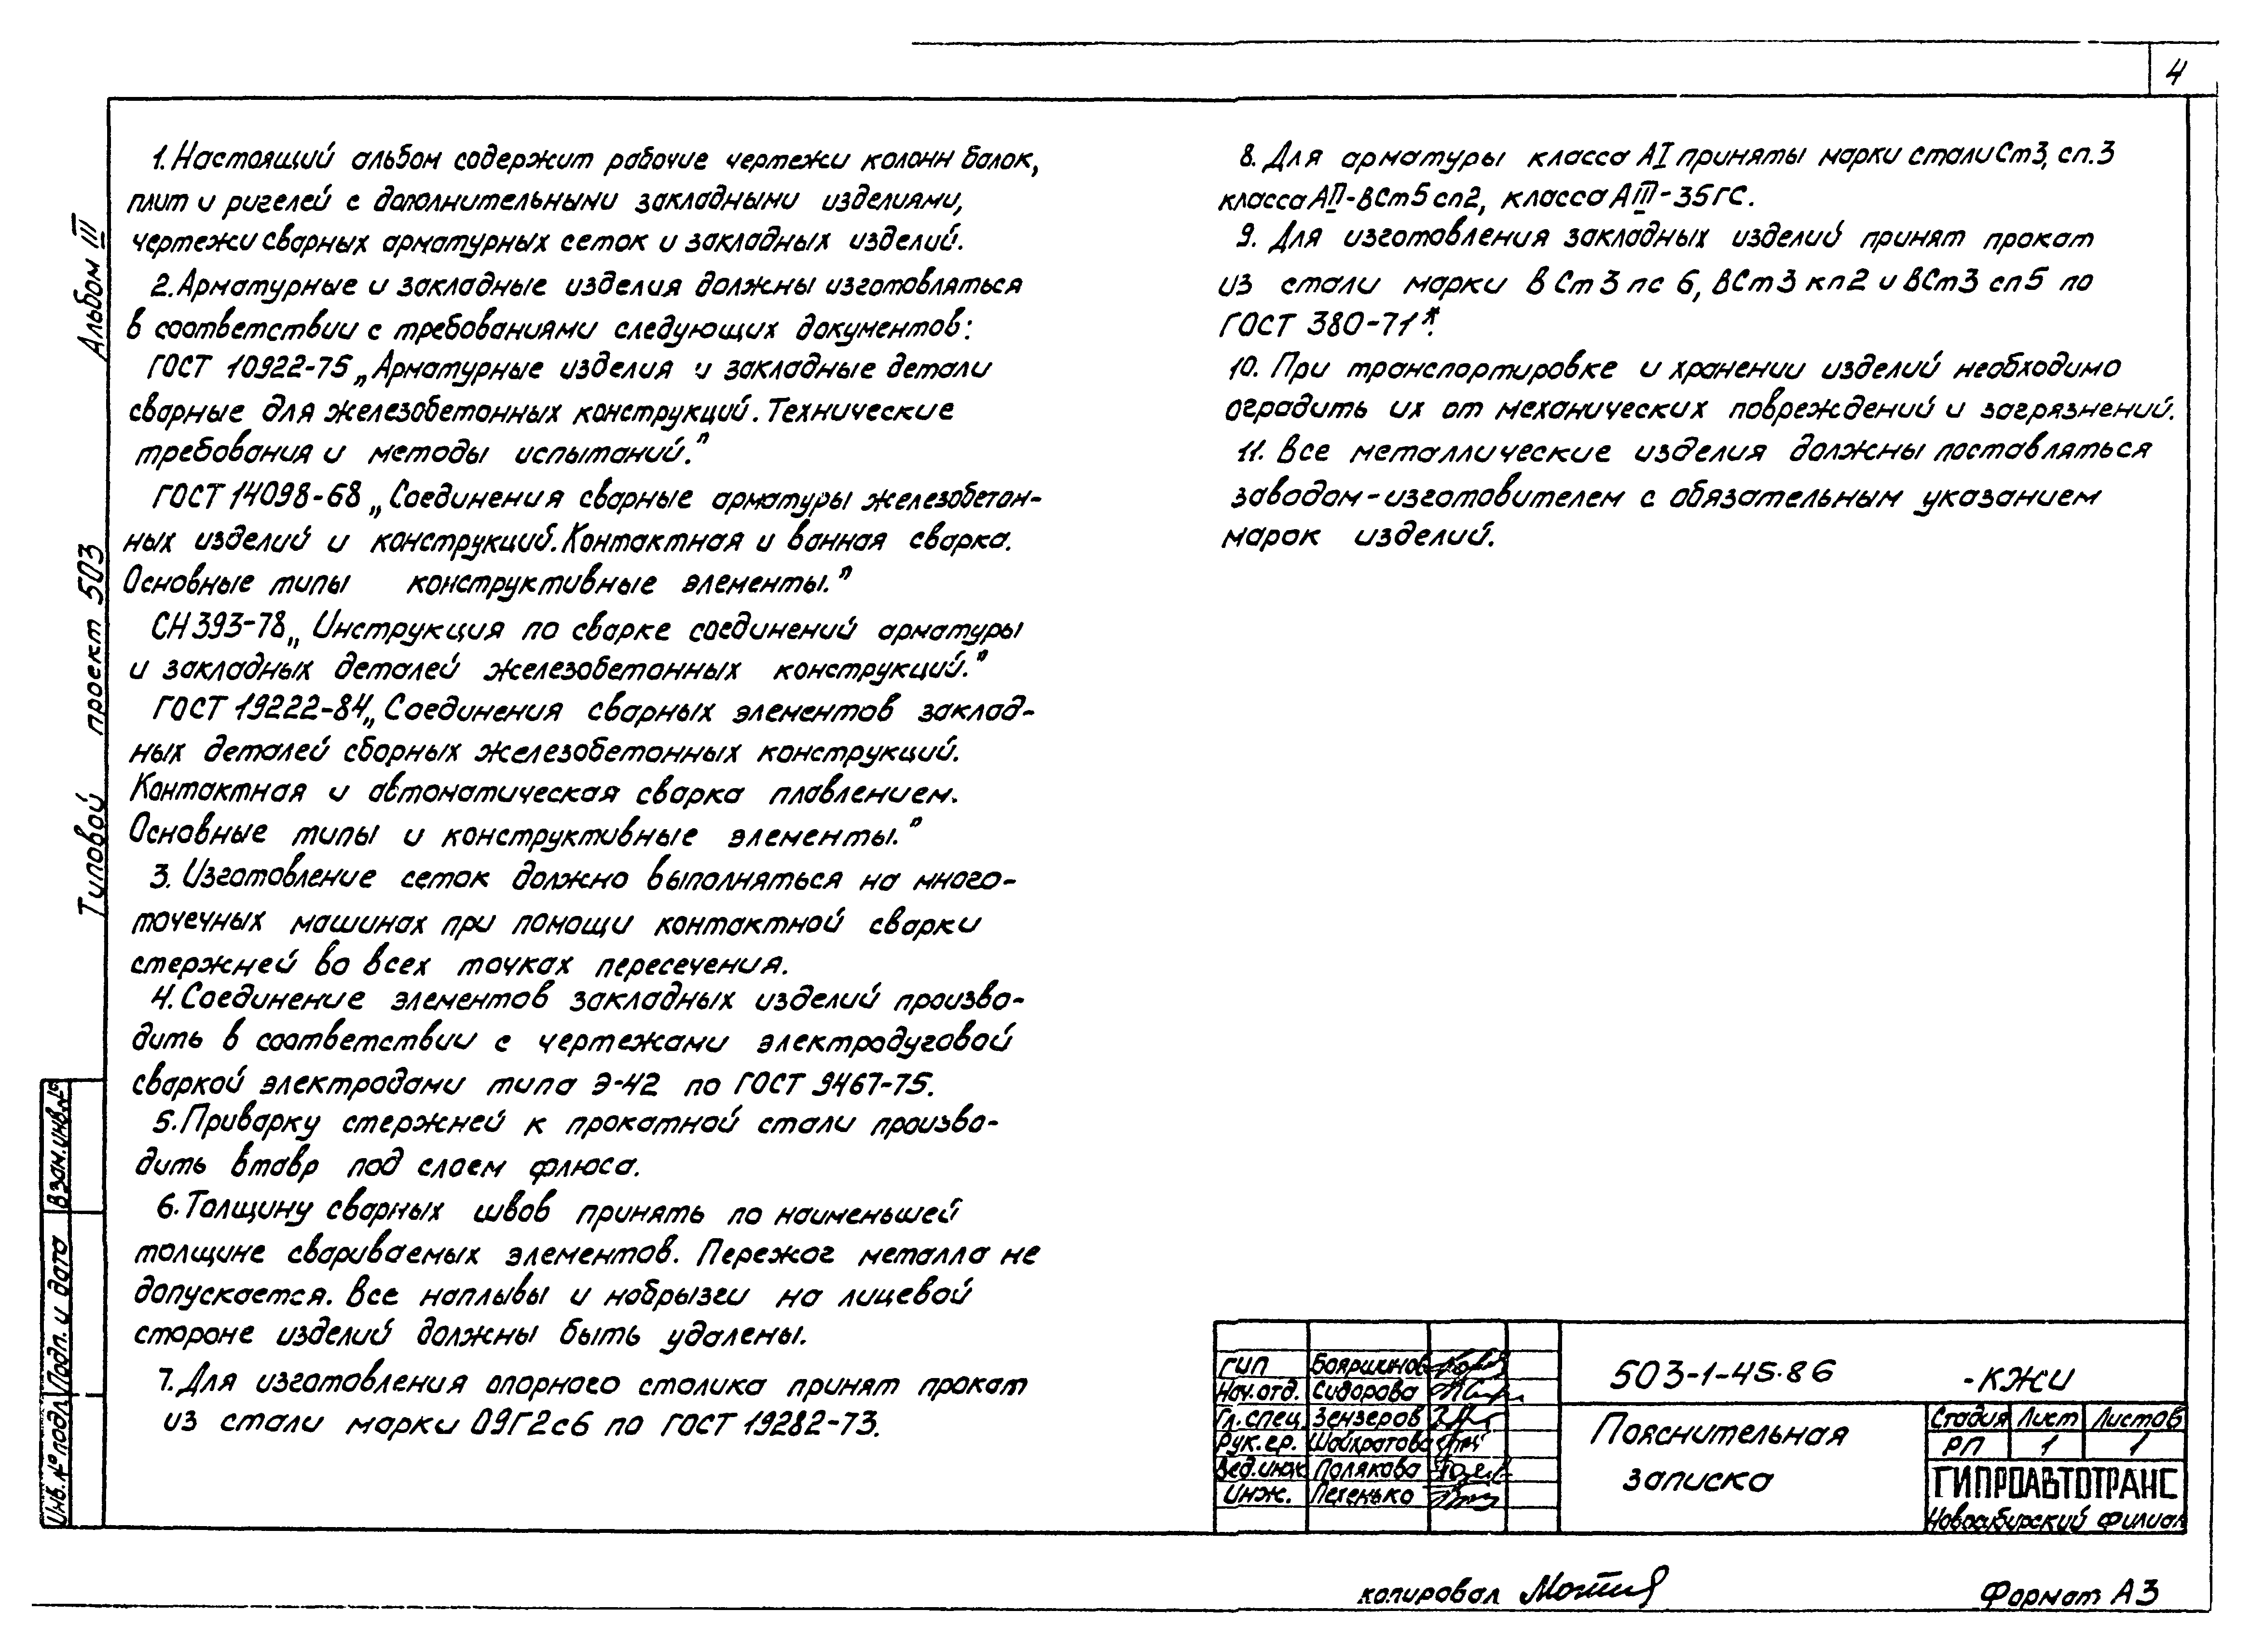 4
1. Настоящий альбом содержит рабочие чертежи колонн балок,
плит и ригелей с дополнительными закладными изделиями,
чертежи сварных арматурных сеток и закладных изделий.
2. Арматурные и закладные изделия должны изготовляться
в соответствии с требованиями следующих документов:
ГОСТ 10922-75 „Арматурные изделия и закладные детали
сварные для железобетонных конструкций. Технические
требования и методы испытаний.”
ГОСТ 14098-68 „Соединения сварные арматуры железобетон-
ных изделий и конструкций. Контактная и ванная сварка.
Основные типы конструктивные элементы.”
СН 393-78 „Инструкция по сварке соединений арматуры
и закладных деталей железобетонных конструкций.”
ГОСТ 19222-84 „Соединения сварных элементов заклад-
ных деталей сборных железобетонных конструкций.
Контактная и автоматическая сварка плавлением.
Основные типы и конструктивные элементы.”
3. Изготовление сеток должно выполняться на много-
точечных машинах при помощи контактной сварки
стержней во всех точках пересечения.
4. Соединение элементов закладных изделий произво-
дить в соответствии с чертежами электродуговой
сваркой электродами типа Э-42 по ГОСТ 9467-75.
5. Приварку стержней к прокатной стали произво-
дить втавр под слоем флюса.
6. Толщину сварных швов принять по наименьшей
толщине свариваемых элементов. Пережог металла не
допускается. Все наплывы и набрызги на лицевой
стороне изделий должны быть удалены.
7. Для изготовления опорного столика принят прокат
из стали марки 09Г2с6 по ГОСТ 19282-73.
8. Для арматуры класса АI приняты марки стали Ст3, сп.3
класса АII-ВСт5сп2, класса АIII-35ГС.
9. Для изготовления закладных изделий принят прокат
из стали марки ВСт3пс6, ВСт3кп2 и ВСт3сп5 по
ГОСТ 380-71*.
10. При транспортировке и хранении изделий необходимо
оградить их от механических повреждений и загрязнений.
11. Все металлические изделия должны поставляться
заводом-изготовителем с обязательным указанием
марок изделий.
Типовой проект 503 Альбом III
Инв. № подл. Подп. и дата Взам. инв. №
ГИП Бояршинов
Нач. отд. Сидорова
Гл. спец. Зензеров
Рук. гр. Шайхратова
Вед. инж. Полякова
Инж. Петенько
503-1-45.86 -КЖИ
Пояснительная
записка
Стадия Лист Листов
РП 1 1
ГИПРОАВТОТРАНС
Новосибирский филиал
копировал
Формат А3